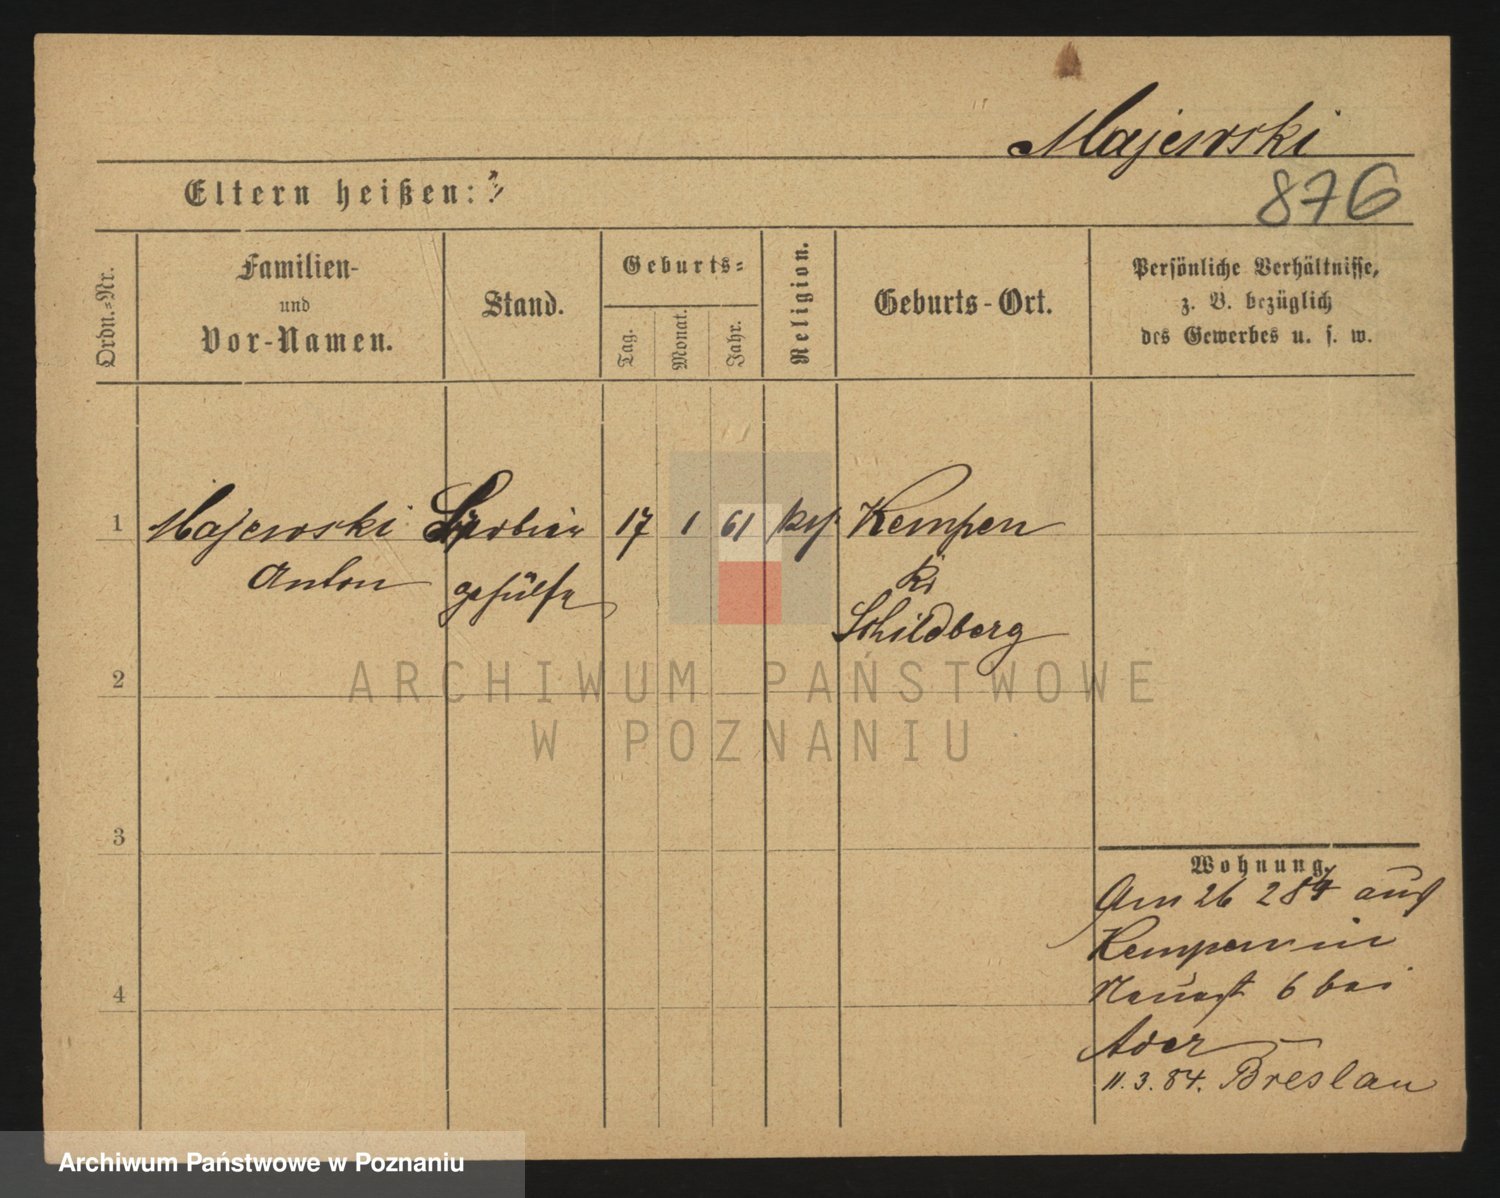 Majewski
Eltern heißen:
876
Ordn.-Nr.
Familien-
und
Vor-Namen.
Stand.
Geburts-
Tag.
Monat.
Jahr.
Religion.
Geburts-Ort.
Persönliche Verhältnisse,
z. B. bezüglich
des Gewerbes u. s. w.
1
Majewski
Anton
gehülfe
17
1
61
Kempen
Kr
Schildberg
2
ARCHIWUM PAŃSTWOWE
W POZNANIU
3
Wohnung.
Am 26 2 84 aus
Kempen in
6 bei
Ader
4
11.3.84. Breslau
Archiwum Państwowe w Poznaniu